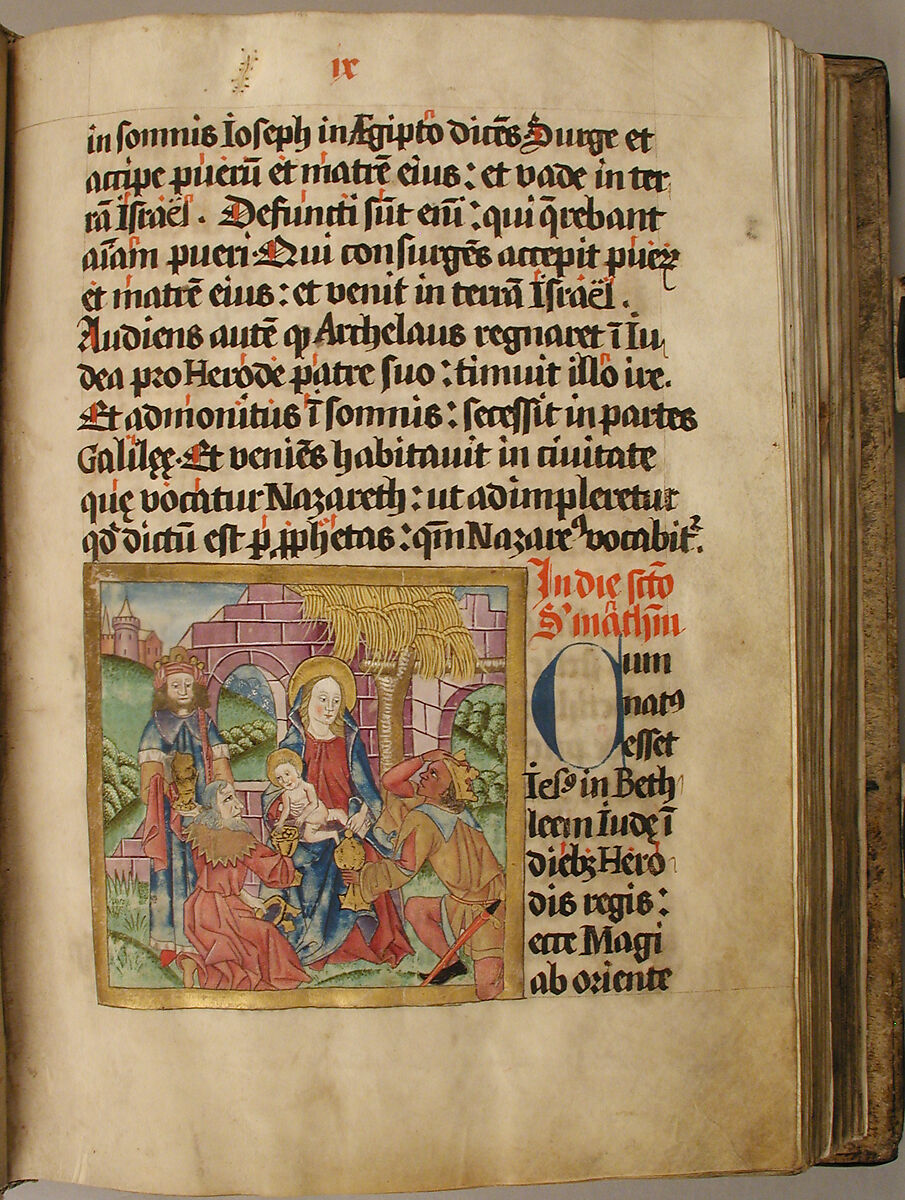 ix
in somnis Ioseph in Ægipto dicẽs Surge et
accipe puerũ et matrẽ eius : et vade in ter
rã Israël . Defuncti sũt eni͂ : qui q̃rebant
ai͂am pueri . Qui consurgẽs accepit pueꝝ
et matrẽ eius : et venit in terrã Israël .
Audiens autẽ ꝙ Archelaus regnaret ĩ Iu
dea pro Herode patre suo : timuit illo ire .
Et admonitus ĩ somnis : secessit in partes
Galilęę . Et veniẽs habitavit in civitate
quę vocatur Nazareth : ut adimpleretur
qđ dictũ est ꝑ ꝓphetas : qm̃ Nazareꝰ vocabit᷑ .
In dię sct̃o
S' math̃m
Cum
natꝰ
esset
Iesꝰ in Beth
leem Iudę ĩ
diebꝫ Hero
dis regis :
ecce Magi
ab oriente